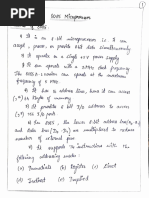 8085 Microprocessor
of 8085
It is an 8 bit microprocessor is it can
accept, process, or provide 8 bit data simultaneously
It operates on a single +5V power supply
It can operate with a 3MHz clock frequency.
The 8085 A version can operate at the maximum
frequency of 5 MHz
It has 16 address lines, hence it can access
(2^16) bytes of memory
It has 8 bit I/O address to access
(2^8) I/O ports.
In 8085, the lower 8-bit address bus (A0-A7)
and data bus (D0 - D7) are multiplexed to reduce
number of external pins
It supports 74 instructions with the
following addressing modes:
(a) Immediate (b) Register (c) Direct
(d) Indirect (e) Implied